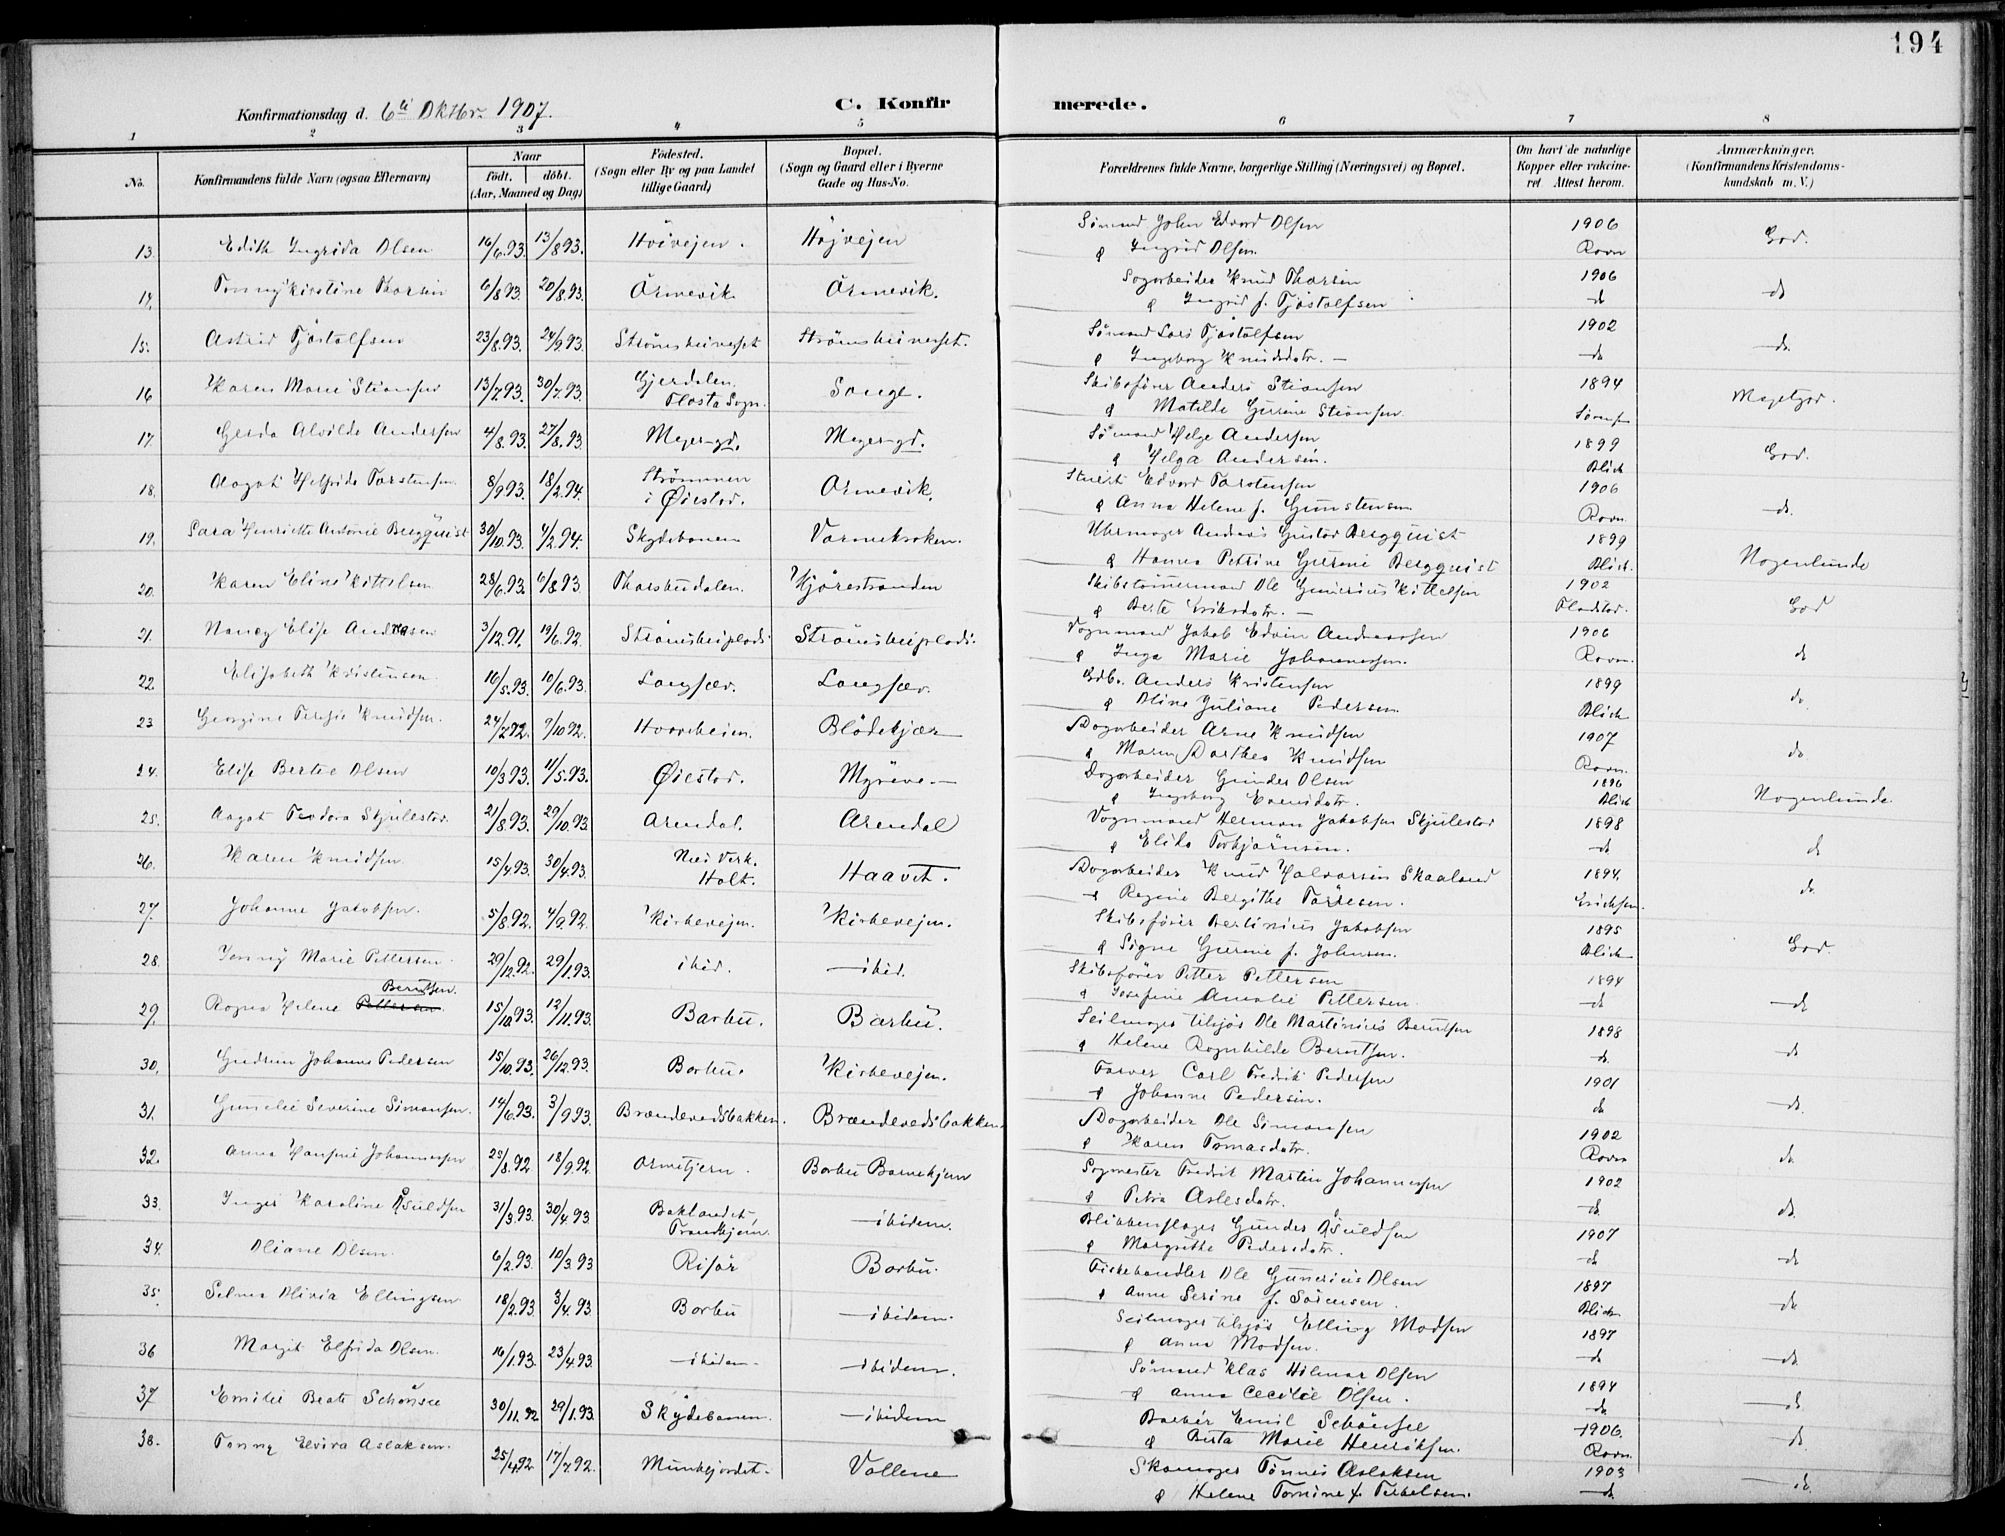 194
Konfirmationsdag d. 6te Oktbr. 1907.
C. Konfirmerede.
1 2 3 4 5 6 7 8
No.
Konfirmandens fulde Navn (ogsaa Efternavn)
Naar
födt. döbt.
(Aar, Maaned og Dag)
Födested.
(Sogn eller By og paa Landet
tillige Gaard)
Bopæl.
(Sogn og Gaard eller i Byerne
Gade og Hus-No.
Forældrenes fulde Navne, borgerlige Stilling (Næringsvei) og Bopæl.
Om havt de naturlige
Kopper eller vakcine-
ret Attest herom.
Anmærkninger.
(Konfirmandens Kristendoms-
kundskab m. V.)
13. Edith Ingrida Olsen 16/6.93. 13/8 93. Höivejen. Höjvejen Sömand John Edvard Olsen 1906 God.
& Ingrid Olsen Ravn
14. Tonny Kirstine Thorsen 6/8 93. 20/8.93. Örnevik Örnevik. Sagarbeider Knud Thorsen 1906 do
& Ingrid f. Tjöstolfsen do
15. Astrid Tjöstolfsen 23/8.93. 24/9.93. Strömsheiverket Strömsheiverket. Sömand Lars Tjöstolfsen 1902 do.
& Ingeborg Knudsdatr. do
16 Karen Marie Stiansen 13/7.93. 30/7.93. Gjerdalen, Flosta Sogn. Songe. Skibsförer Anders Stiansen 1894 Megetgod.
& Matilde Gurine Stiansen
17. Gerda Alvilde Andersen 4/8.93. 27/8.93. Meyer-gd. Meyer-gd. Sömand Helge Andersen 1899 God.
& Helga Andersen. Blich
18. Aagot Helfride Torstensen 8/9 93. 18/2.94. Strömmen i Øiestad. Örnevik. Stuert Edvard Torstensen 1906 do.
& Anna Helene f. Gunstensen Ravn
19. Sara Henriette Antonie Bergquist 30/10.93. 4/2.94. Skydebanen Varmekroken. Uhrmager Andreas Gustav Bergquist 1899 Nogenlunde
& Hanna Petrine Gurine Bergquist Blich.
20. Karen Eline Kittelsen 28/6.93. 6/8 93. Thorsbudalen. Kjörestranden Skibstömmermand Ole Gunerius Kittelsen 1902 God
& Berte Eriksdatr.
21. Nancy Elise Andreasen 3/12.91. 19/6.92. Strömsheiplads Strömsheiplads. Vognmand Jakob Edvin Andreassen 1906 do
& Inga Marie Johannessen. Ravn.
22. Elisabeth Kristensen 16/5.93. 10/6.93. Langsæv. Langsæv. Gdb. Anders Kristensen 1899 do.
& Oline Juliane Pedersen Blich
23 Georgine Terese Knudsen. 24/7.92. 9/10 92. Blödekjær Dagarbeider Arne Knudsen 1907 do
& Maren Dorthea Knudsen Ravn.
24. Elise Bertee Olsen 10/3 93. 11/5.93. Øiestad. Myrene Dagarbeider Gunder Olsen 1896 Nogenlunde
& Ingeborg Evensdatr. Blich
25. Aagot Teodora Skjulestad. 21/8.93. 29/10.93 Arendal. Arendal Vognmand Herman Jakobsen Skjulestad 1898 do
& Elida Torbjörnsen. do
26. Karen Knudsen. 15/4.93. 30/4.93. Næs Verk. Holt. Haavet. Dagarbeider Knud Halvorsen Skaaland 1894. do
& Regine Bergithe Tarjesen. Erichsen.
27 Johanne Jakobsen. 5/8.92. 4/9.92. Kirkevejen. Kirkevejen. Skibsförer Bertinius Jakobsen 1895 God
& Signe Gurine f. Johnsen. Blich
28. Jenny Marie Pettersen. 29/12.92. 29/1.93. ibid. ibid. Skibsförer Petter Pettersen 1894 do
& Josefine Amalie Pettersen. do
29. Ragna Helene Pettersen Berntsen. 15/10.93. 12/11.93. Barbu. Barbu. Seilmager tilsjös Ole Martinius Berntsen 1898 do
& Helene Ragnhilde Berntsen. do
30. Gudrun Johanne Pedersen 15/10.93. 26/12.93. Barbu. Kirkevejen. Farver Carl Fredrik Pedersen 1901 do.
& Johanne Pedersen. do
31. Gunelie Severine Simonsen. 14/6.93. 3/9 93. Brændevedsbakken. Brændevedsbakken. Dagarbeider Ole Simonsen 1902 do
& Karen Tomasdatr. Ravn
32. Anna Hansine Johannesen 25/8.92 18/9.92. Ormetjern. Barbu Barnehjem Sagmester Fredrik Martin Johannesen 1902 do.
& Petra Aslesdatr. do.
33. Inger Karoline Åsuldsen 31/3.93. 30/4.93. Baklandet, Trondhjem. ibidem. Blikkenslager Gunder Åsuldsen 1907 do
& Margrethe Pedersdatr. do
34. Oliane Olsen. 6/2.93. 10/3.93 Risör Barbu. Fiskehandler Ole Gunerius Olsen 1897 do
& Anne Serine f. Sörensen. Blich
35. Selma Olivia Ellingsen 18/2.93. 3/4.93 Barbu ibidem. Seilmager tilsjös Elling Madsen 1897 do.
& Anna Madsen. do
36 Margit Elfrida Olsen. 16/1.93. 23/4.93. ibidem. ibidem. Sömand Klas Hilmar Olsen 1894 do
& Anna Cecilie Olsen. do
37 Emilie Beate Schönsee 30/11.92 29/1.93. Skydebanen. ibidem Barbér Emil Schönsee 1906. do.
& Berta Marie Henriksen. Ravn.
38. Tonny Elvira Aslaksen. 25/4.92 17/7.92. Munkejordet. Vollene Skomager Tönnes Aslaksen 1903 do.
& Helene Tomine f. Terkelsen. do.